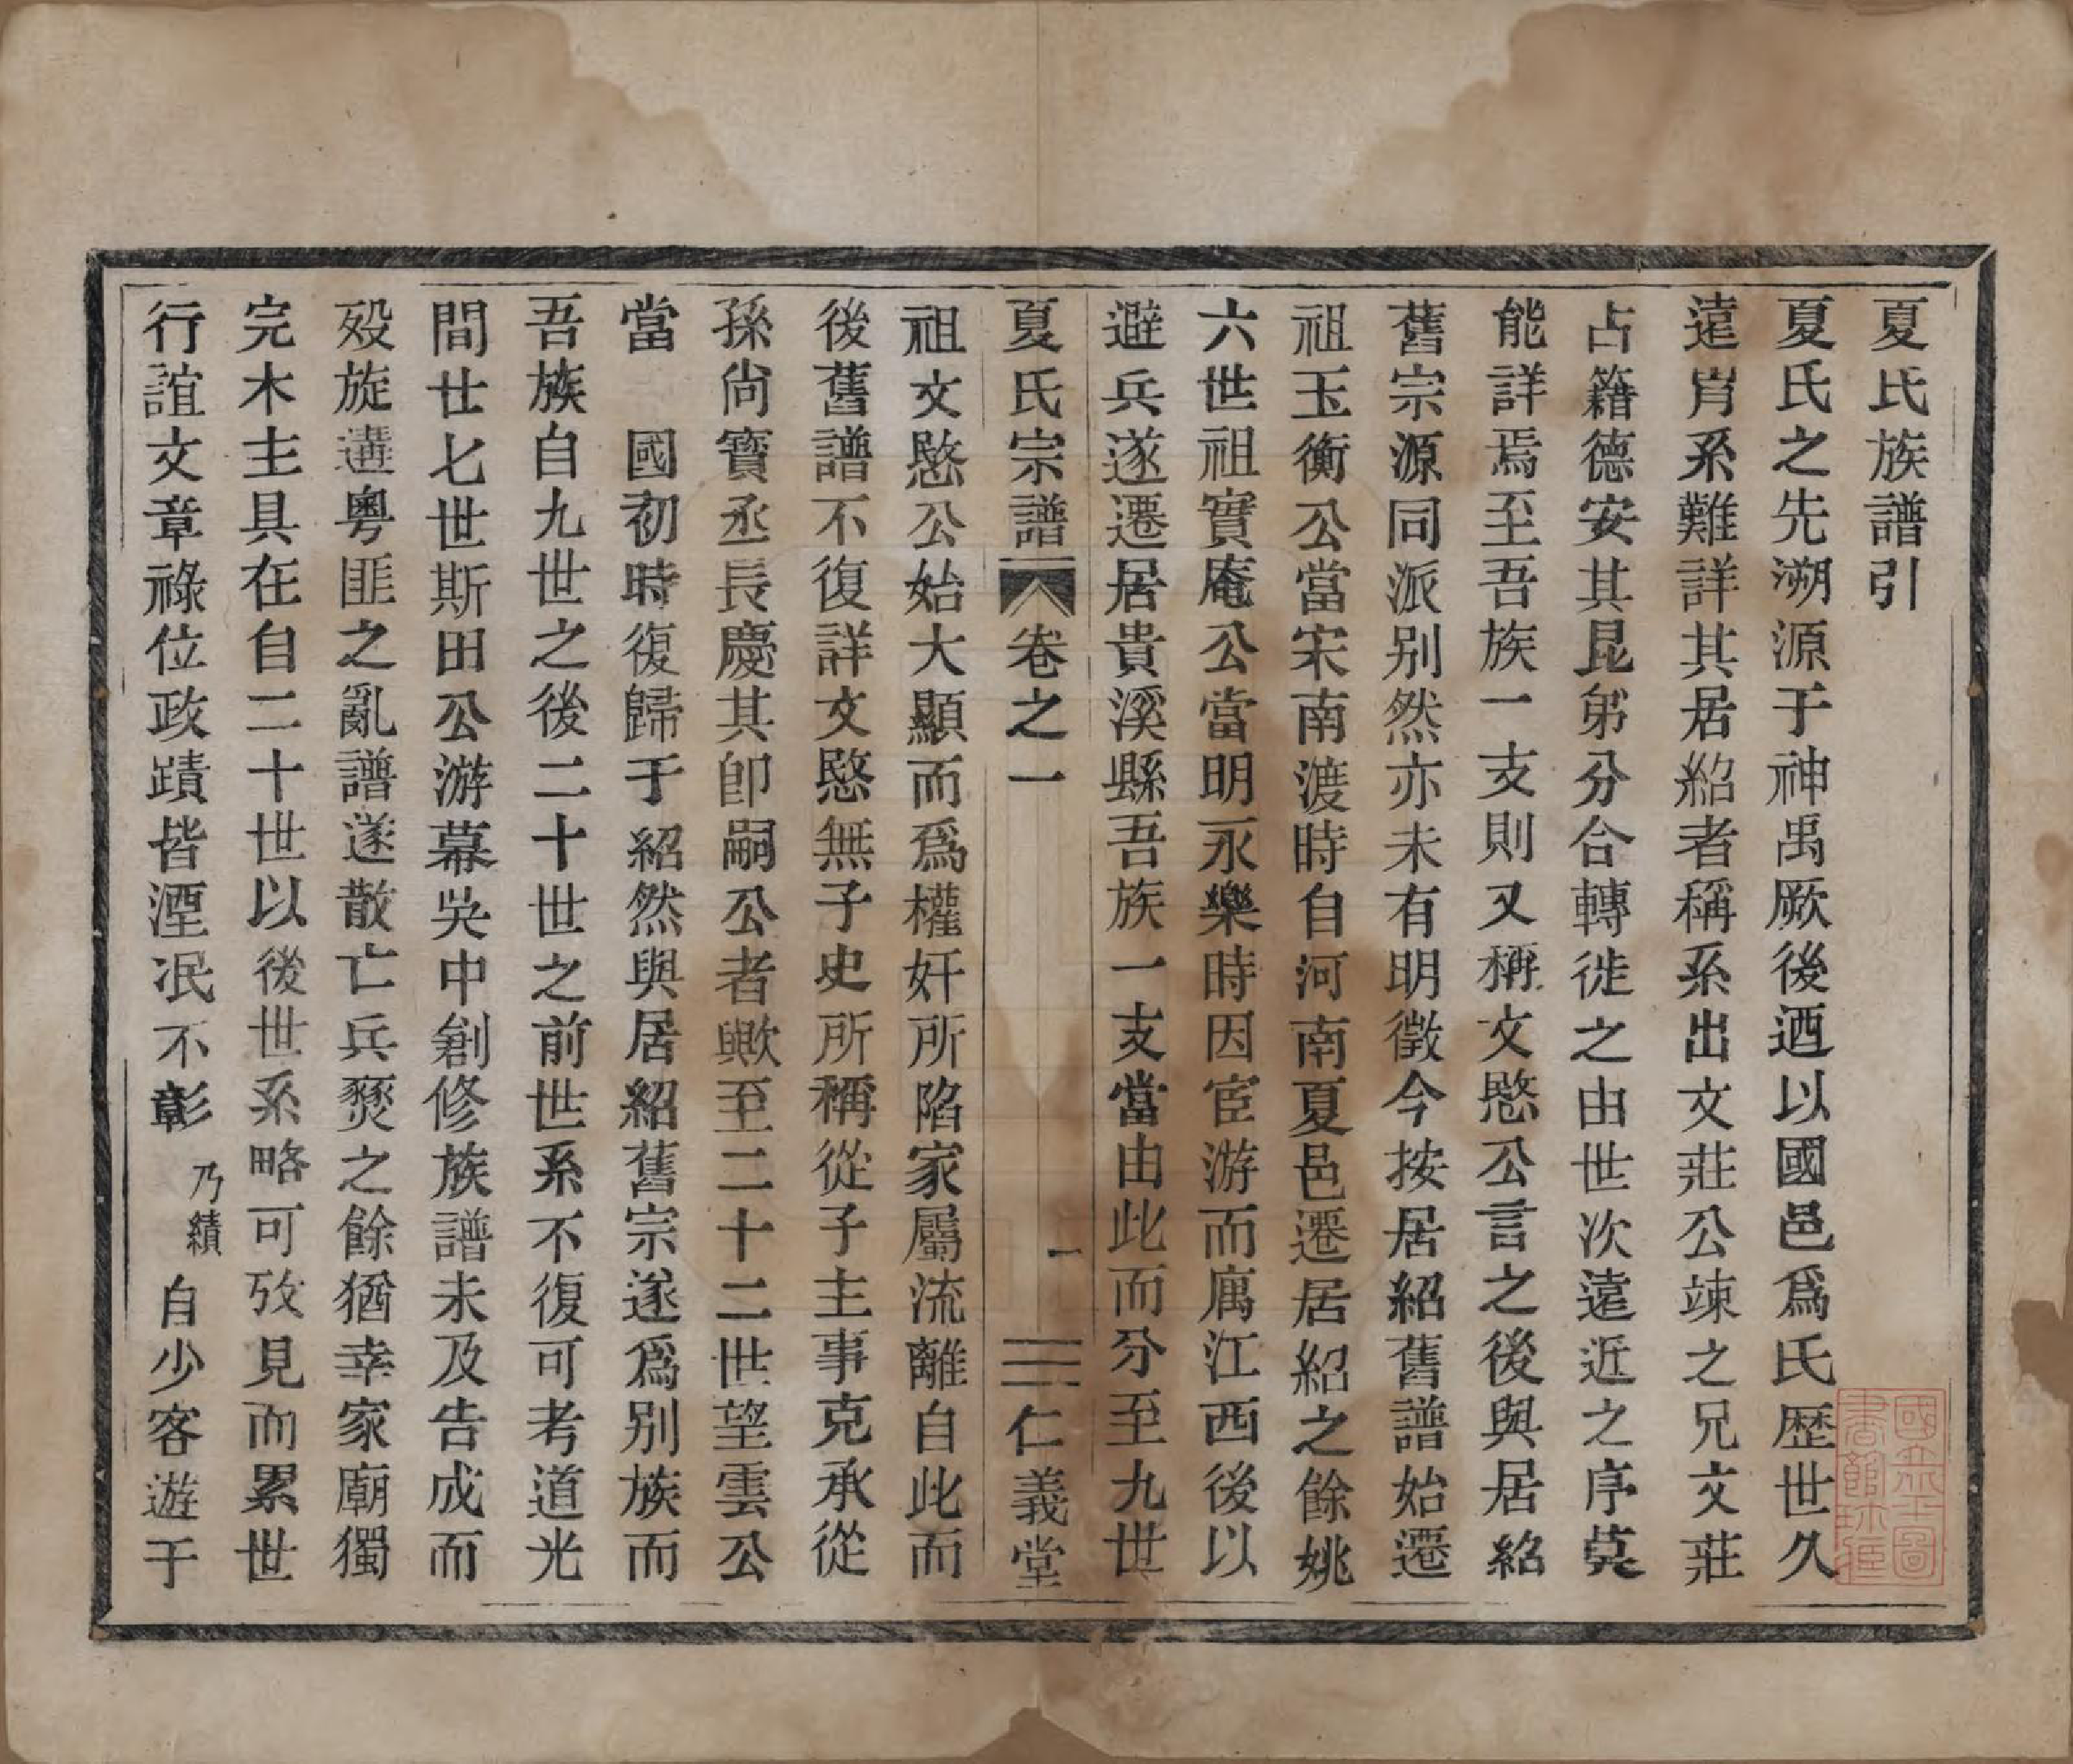 夏氏族譜引
夏氏之先溯源于神禹厥後迺以國邑爲氏歷世久
遠肯系難詳其居紹者稱系出文莊公竦之兄文莊
占籍德安其昆弟分合轉徙之由世次遠近之序莫
能詳焉至吾族一支則又稱文愍公言之後與居紹
舊宗源同派別然亦未有明徵今按居紹舊譜始遷
祖玉衡公當宋南渡時自河南夏邑遷居紹之餘姚
六世祖實庵公當明永樂時因宦游而厲江西後以
避兵遂遷居貴溪縣吾族一支當由此而分至九世
夏氏宗譜 卷之一 一 仁義堂
祖文愍公始大顯而爲權奸所陷家屬流離自此而
後舊譜不復詳文愍無子史所稱從子主事克承從
孫尙寶丞長慶其卽嗣公者歟至二十二世望雲公
當 國初時復歸于紹然與居紹舊宗遂爲別族而
吾族自九世之後二十世之前世系不復可考道光
間廿七世斯田公游幕吳中創修族譜未及告成而
歿旋遘粵匪之亂譜遂散亡兵燹之餘猶幸家廟獨
完木主具在自二十世以後世系略可攷見而累世
行誼文章祿位政蹟皆湮泯不彰乃績自少客遊于
國立北平圖書館珍藏